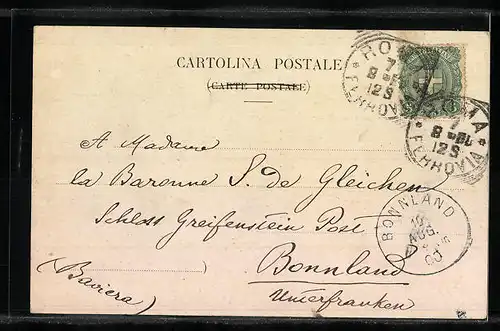 CARTOLINA POSTALE
(CARTE POSTALE)
ROMA
FERROVIA
7
8
12S
ROMA
FERROVIA
7
8
12S
A Madame
la Baronne S. de Gleichen
Schloss Greifenstein Post
Bonnland
Unterfranken
(Baviera)
BONNLAND
10
AUG.
00